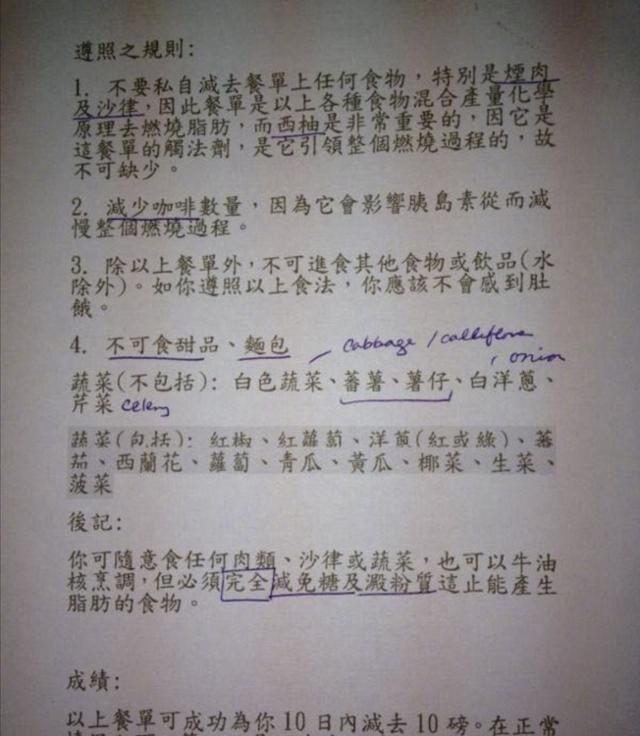 遵照之規則:
1. 不要私自減去餐單上任何食物，特別是煙肉
及沙律，因此餐單是以上各種食物混合產量化學
原理去燃燒脂肪，而西柚是非常重要的，因它是
這餐單的觸法劑，是它引領整個燃燒過程的，故
不可缺少。
2. 減少咖啡數量，因為它會影響胰島素從而減
慢整個燃燒過程。
3. 除以上餐單外，不可進食其他食物或飲品(水
除外)。如你遵照以上食法，你應該不會感到肚
餓。
cabbage / calliflora
4. 不可食甜品、麵包
, onion
蔬菜(不包括): 白色蔬菜、蕃薯、薯仔、白洋蔥、
芹菜 celery
蔬菜(包括): 紅椒、紅蘿蔔、洋蔥(紅或綠)、蕃
茄、西蘭花、蘿蔔、青瓜、黃瓜、椰菜、生菜、
菠菜
後記:
你可隨意食任何肉類、沙律或蔬菜，也可以牛油
核烹調，但必須完全減免糖及澱粉質這止能產生
脂肪的食物。
成績:
以上餐單可成功為你10日內減去10磅。在正常